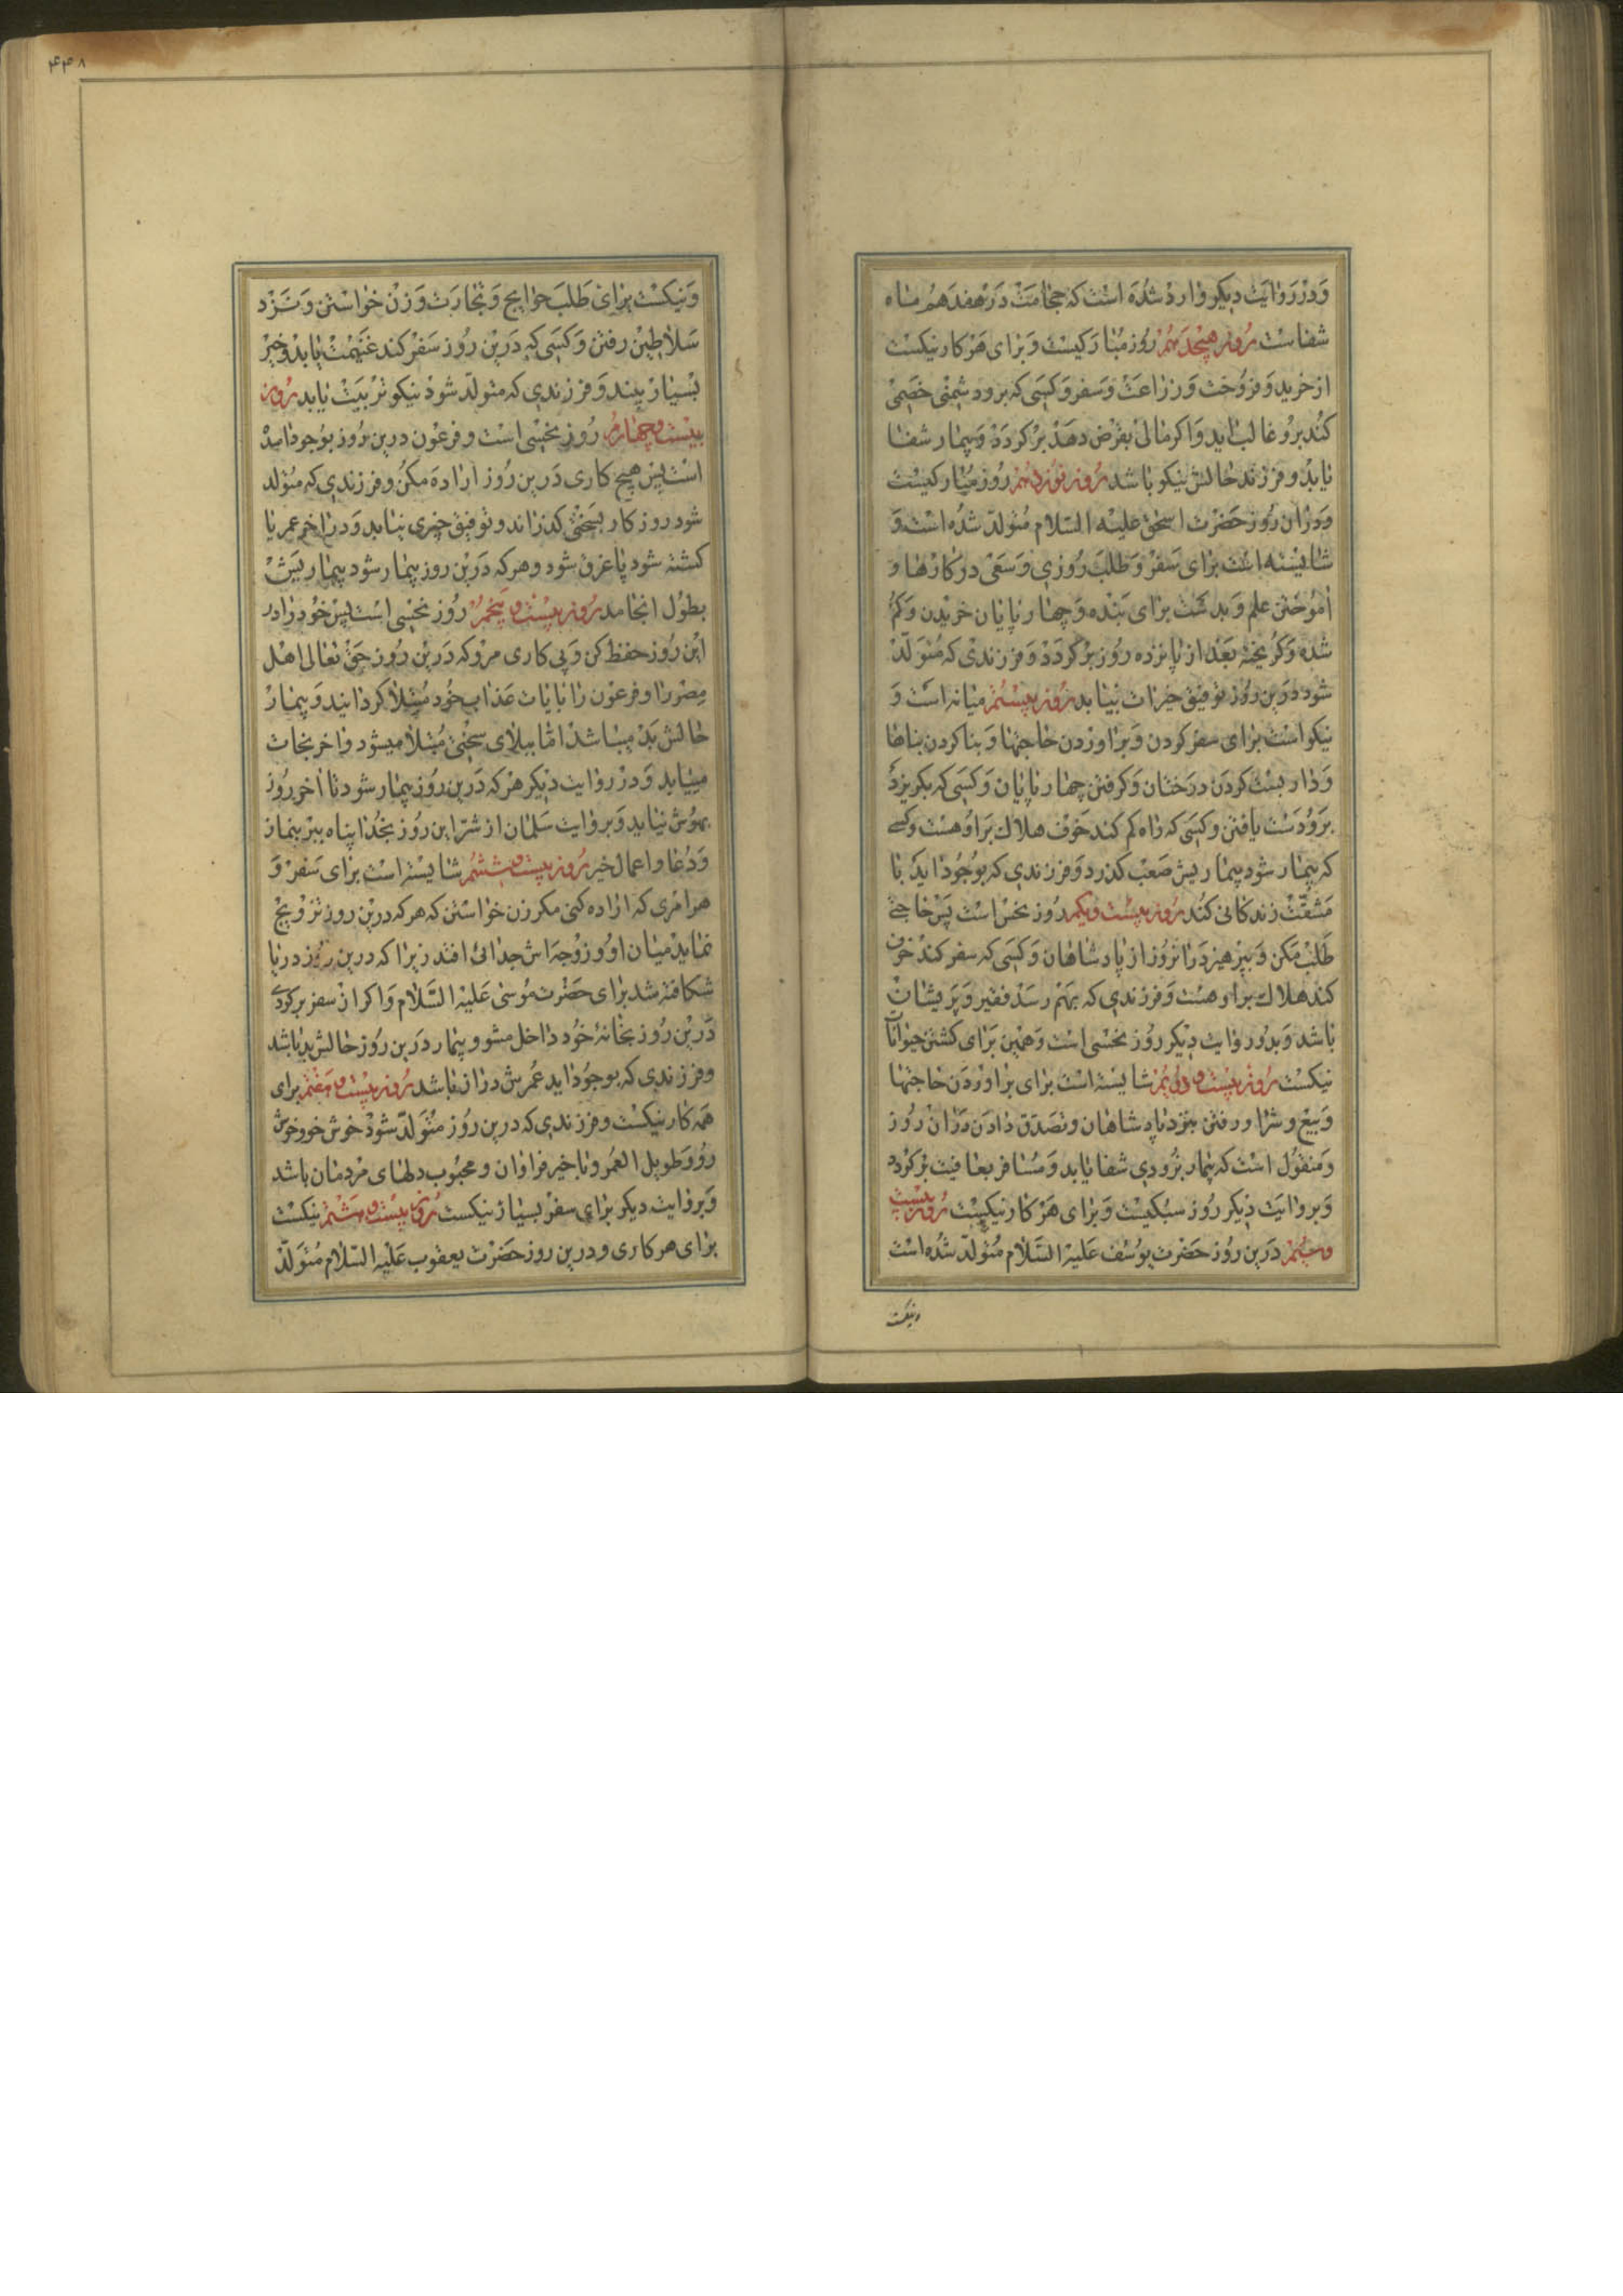 ودر روایت دیکر وارد شده است که حجامت در هفدهم ماه
شفاست روز هیجدهم روز مبارکیست و برای هر کار نیکست
از خرید و فروخت و زراعت و سفر و کسی که برود شمنی خصمی
کند برو غالب اید و اکر مالی بقرض دهد بر کردد و بیمار شفا
یابد و فرزند حالش نیکو باشد روز نوزدهم روز مبارکیست
و در آن روز حضرت اسحق علیه السلام متولد شده است و
شایسته است برای سفر و طلب روزی و سعی در کارها و
اموختن علم و بد ست برای بنده و چهار پایان خریدن و کم
شده و کریخته بعد از پانزده روز بر کردد و فرزندی که متولد
شود درین روز توفیق خیرات بیابد روز بیستم میانه است و
نیکو است برای سفر کردن و براوردن حاجتها و بنا کردن بناها
و دار بست کردن درختان و کرفتن چهار پایان و کسی که بکریزد
برو دست یافتن و کسی که راه کم کند خوف هلاک بر او هست و کسی
که بیمار شود بیماریش صعب کذرد و فرزندی که بوجود اید با
مشقت زندکانی کند روز بیست و یکم روز نحس است پس حاجتی
طلب مکن و بپرهیز در انروز از پادشاهان و کسی که سفر کند خوف
کند هلاک براو هست و فرزندی که بهم رسد فقیر و پریشان
باشد و بدو روایت دیکر روز نحسی است و همین برای کشتن حیوانات
نیکست روز بیست و دویم شایسته است برای براوردن حاجتها
و بیع و شرا و رفتن بنزد پادشاهان و تصدق دادن در ان روز
و منقول است که بیمار بزودی شفا یابد و مسافر بعافیت برکردد
و بروایت دیکر روز سبکیست و برای هر کار نیکیست روز بیست
و سیم درین روز حضرت یوسف علیه السلام متولد شده است
ونیکست
۴۴۸
و نیکست برای طلب حوایج و تجارت و زن خواستن و نزد
سلاطین رفتن و کسی که درین روز سفر کند غنیمت یابد و خیر
بسیار بیند و فرزندی که متولد شود نیکو تربیت یابد روز
بیست و چهارم روز نحسی است و فرعون درین روز بوجود امده
است پس هیچ کاری درین روز اراده مکن و فرزندی که متولد
شود روز کار بسختی کذراند و توفیق خیری نیابد و در اخر عمر یا
کشته شود یا غرق شود و هرکه درین روز بیمار شود بیماریش
بطول انجامد روز بیست و پنجم روز نحسی است پس خود را در
این روز حفظ کن و پی کاری مرو که درین روز حق تعالی اهل
مصر را و فرعون را بایات عذاب خود مبتلا کردانید و بیمار
حالش بد میباشد اما ببلای سختی مبتلا میشود و اخر نجات
مییابد و در روایت دیکر هر که درین روز بیمار شود تا اخر روز
بهوش نیاید و بروایت سلمان از شر این روز بخدا پناه ببر بنماز
و دعا و اعمال خیر روز بیست و ششم شایسته است برای سفر و
هر امری که اراده کنی مکر زن خواستن که هر که درین روز تزویج
نماید میان او و زوجه اش جدائی افتد زیرا که درین روز دریا
شکافته شد برای حضرت موسی علیه السلام و اکر از سفر برکردی
درین روز بخانه خود داخل مشو و بیمار درین روز حالش بد باشد
و فرزندی که بوجود اید عمرش دراز باشد روز بیست و هفتم برای
همه کار نیکست و فرزندی که درین روز متولد شود خوش خو و خوش
رو و طویل العمر و با خیر فراوان و محبوب دلهای مردمان باشد
و بروایت دیکر برای سفر بسیار نیکست روز بیست و هشتم نیکست
برای هر کاری و درین روز حضرت یعقوب علیه السلام متولد